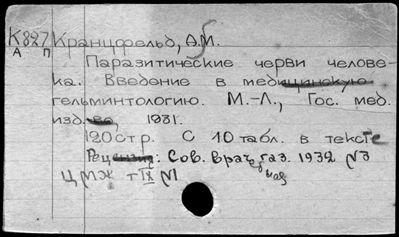 К827 Кранцфельд, А.М.
А П
Паразитические черви челове-
ка. Введение в медицинскую
гельминтологию. М.-Л., Гос. мед.
изд-во, 1931.
120 стр. С 10 табл. в тексте
Рецензия: Сов. врач. газ. 1932 N3
ЦМЖ т IX N1